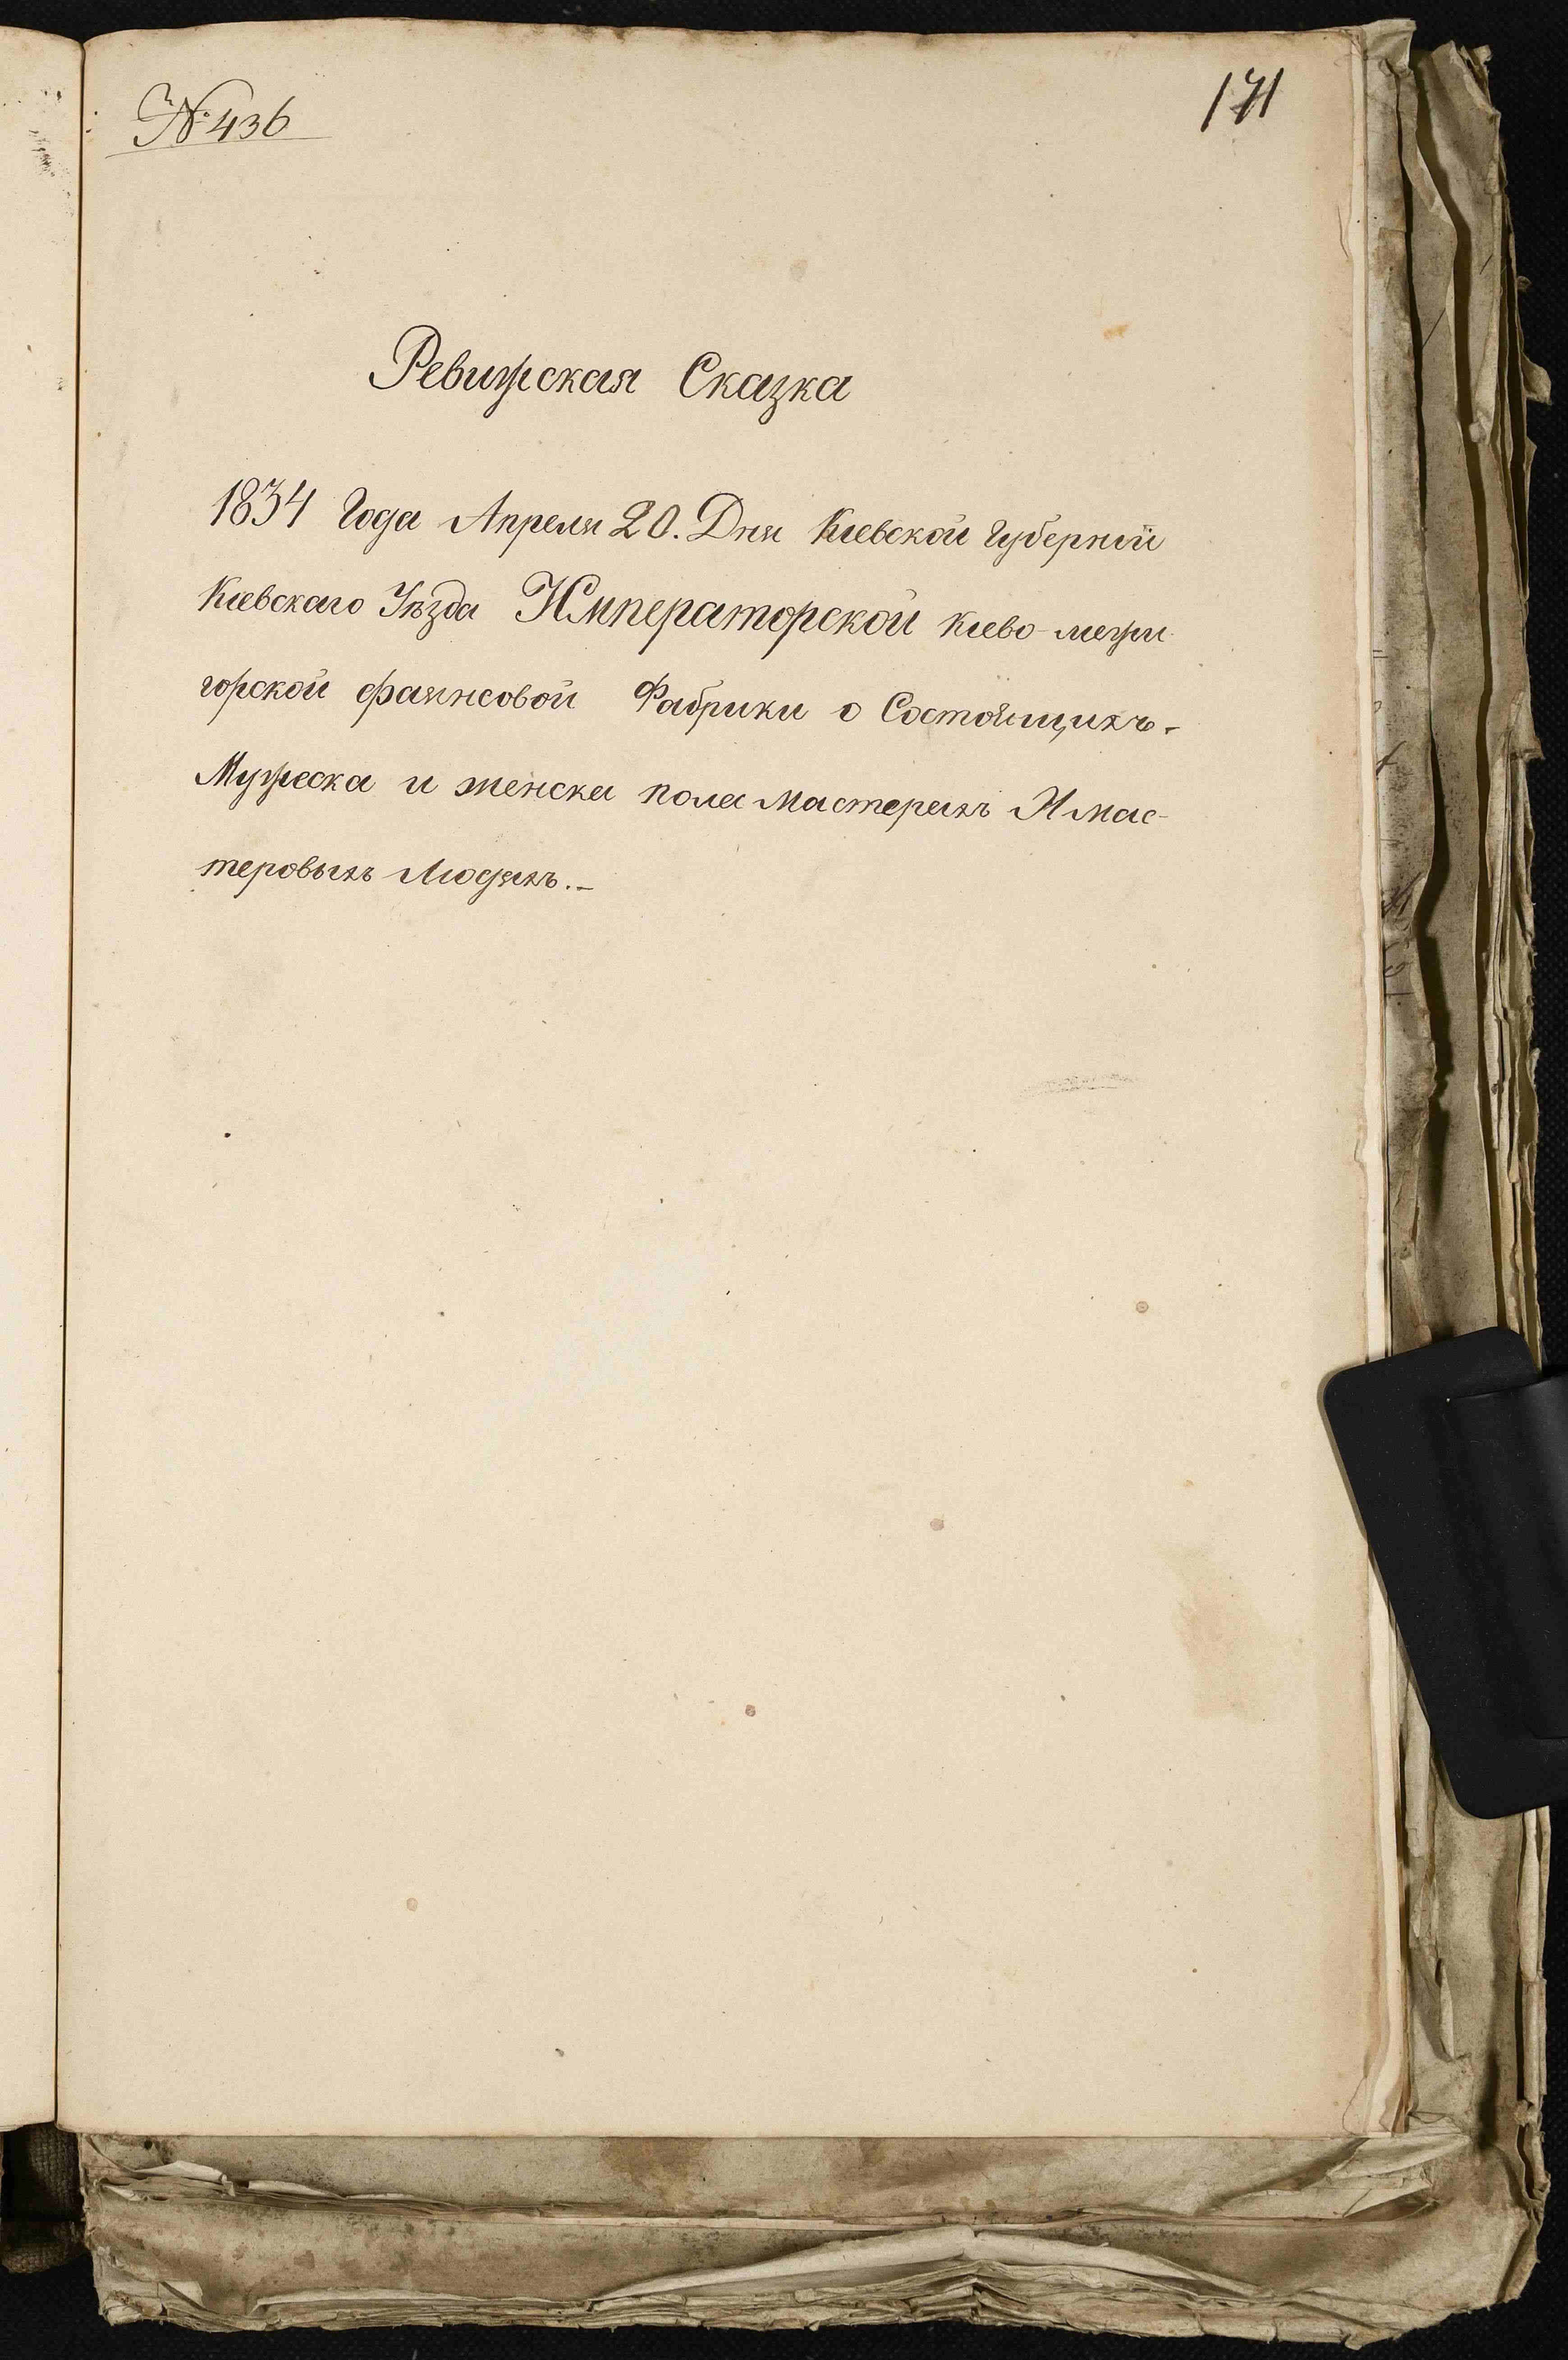 № 436
171
Ревижская Сказка
1834 Года Апреля 20. Дня Кіевской Губерніи
Кіевскаго Уѣзда Императорской Кіево-межи
горской фаянсовой Фабрики о Состоящихъ.
Мужеска и женска пола Мастерахъ И мас-
теровыхъ Людяхъ.-